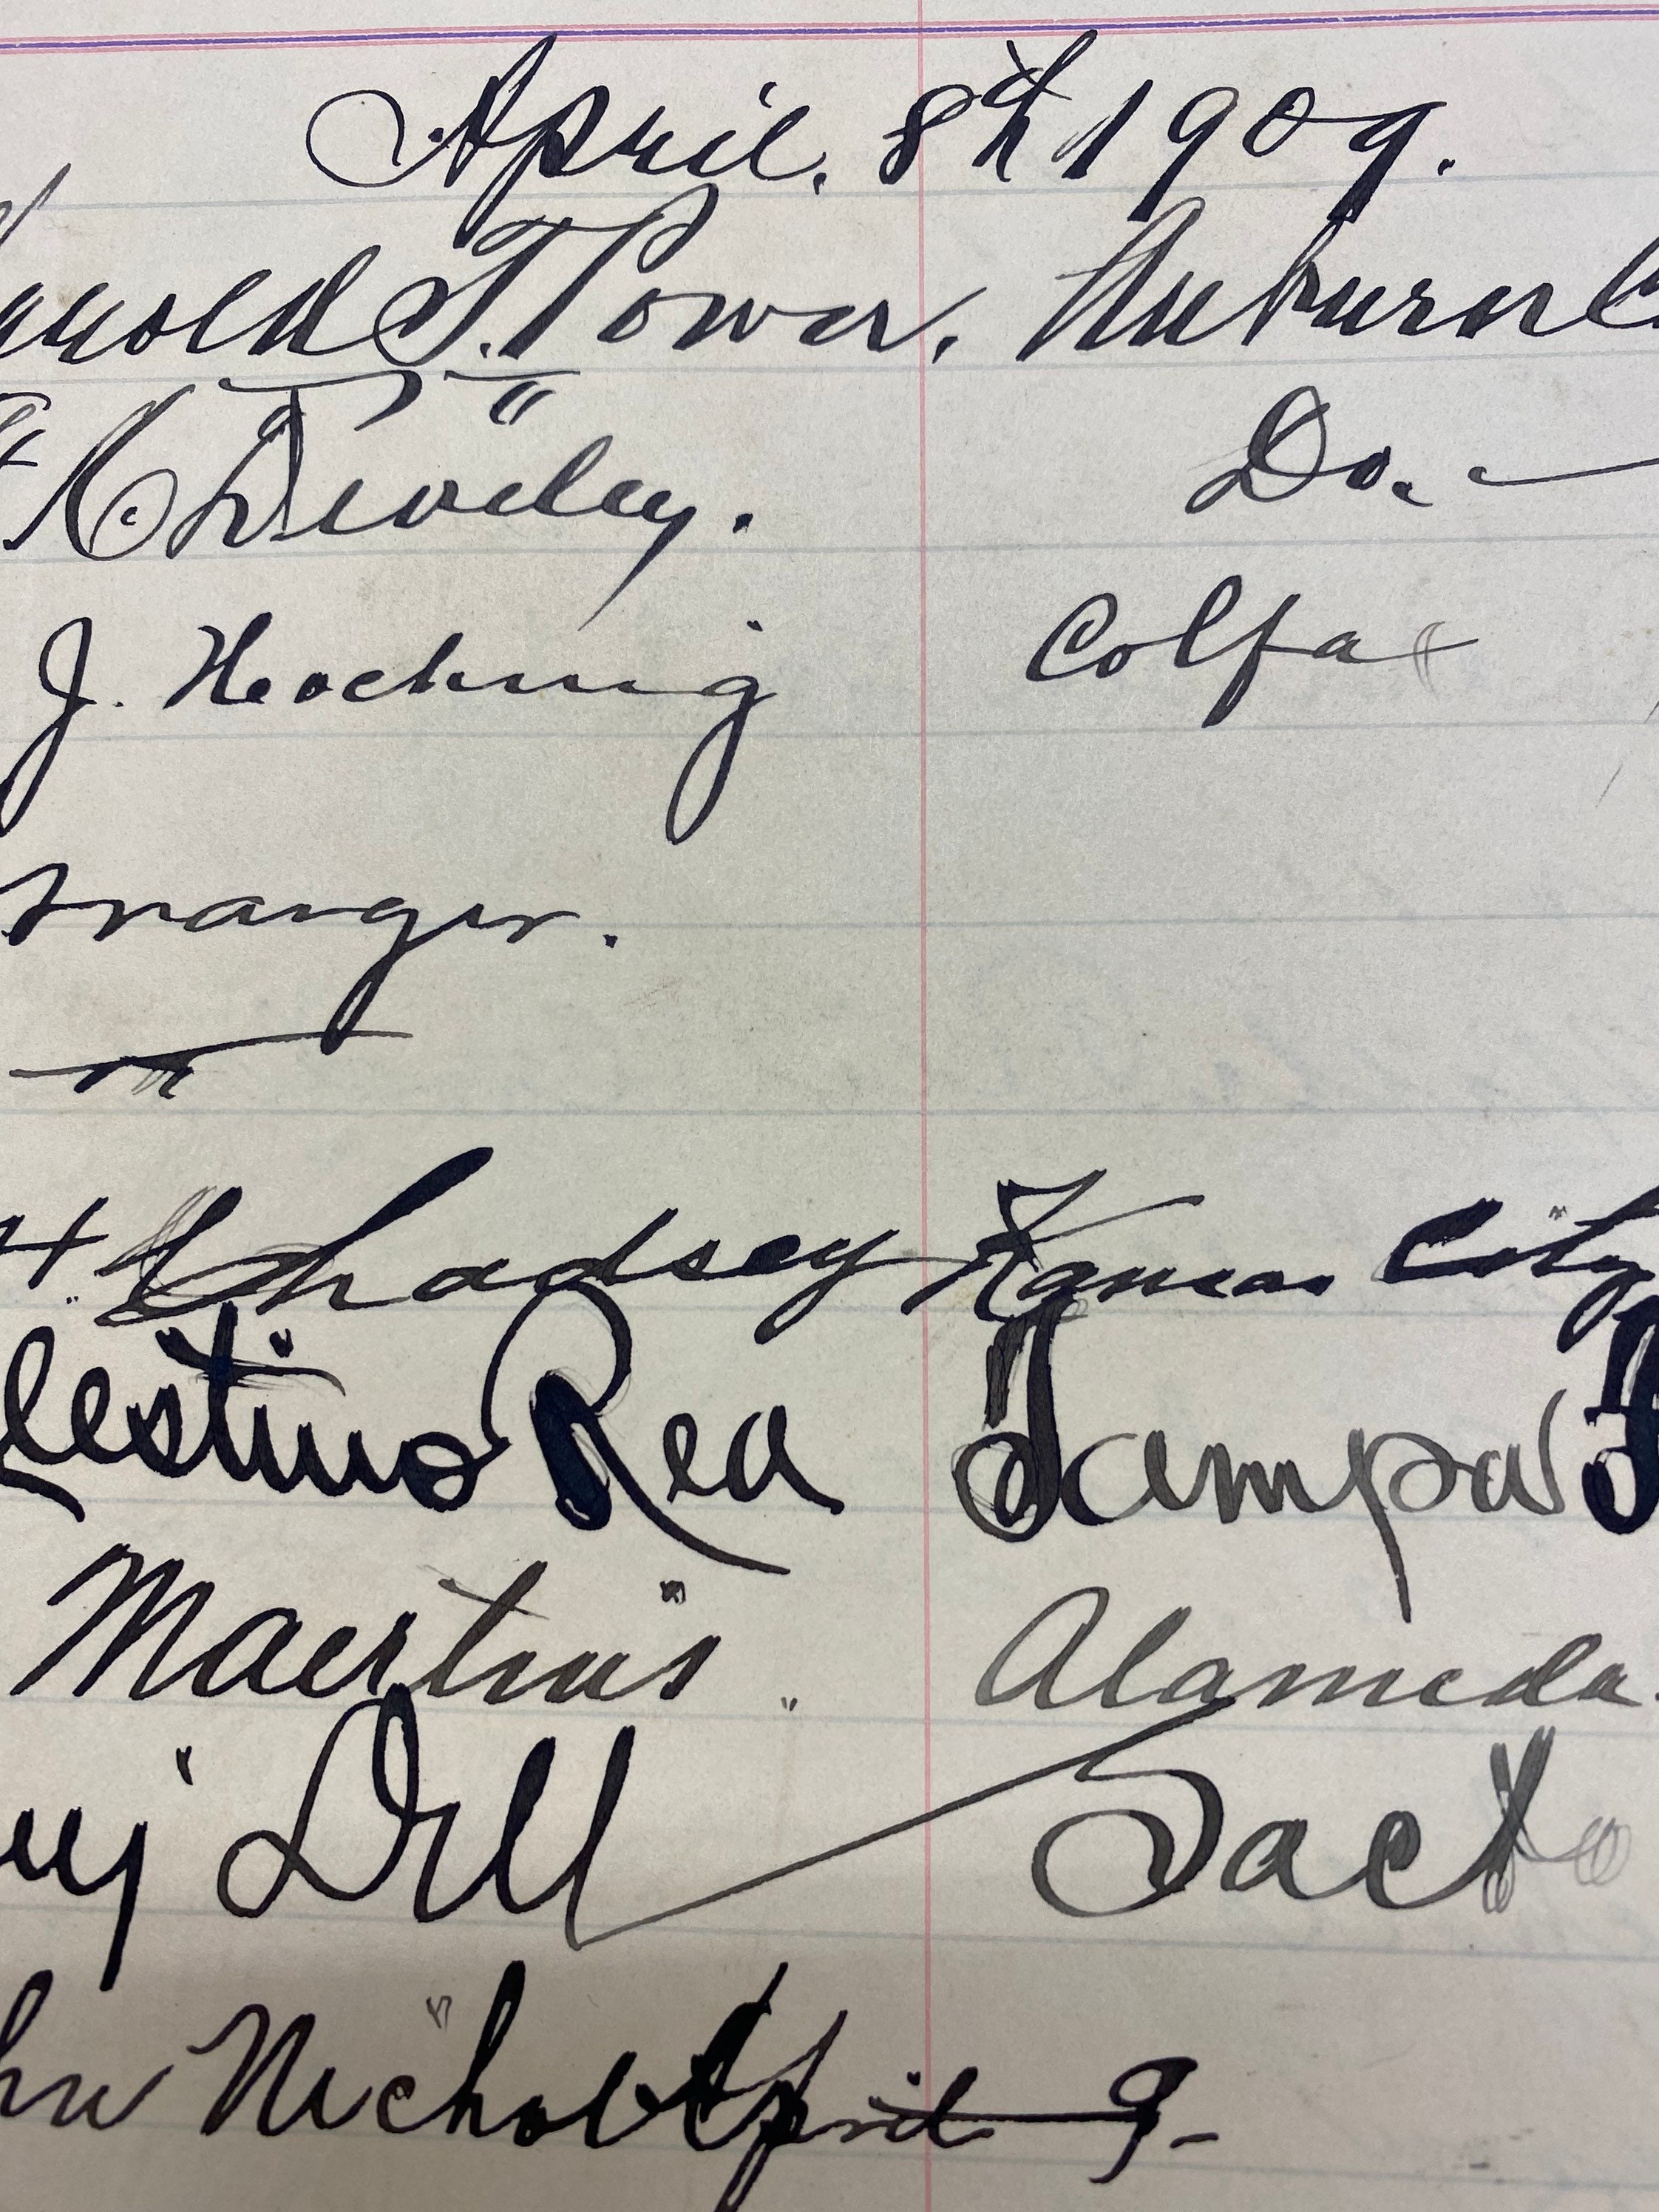 April. 8th 1909.
Harold T. Power. Auburn C
Do.
J. Hoehnig Colfax
Granger.
H Chadsey Kansas City
lestino Rea Tampa
Maertins Alameda.
Dill Sacto
hn Nichols April 9-